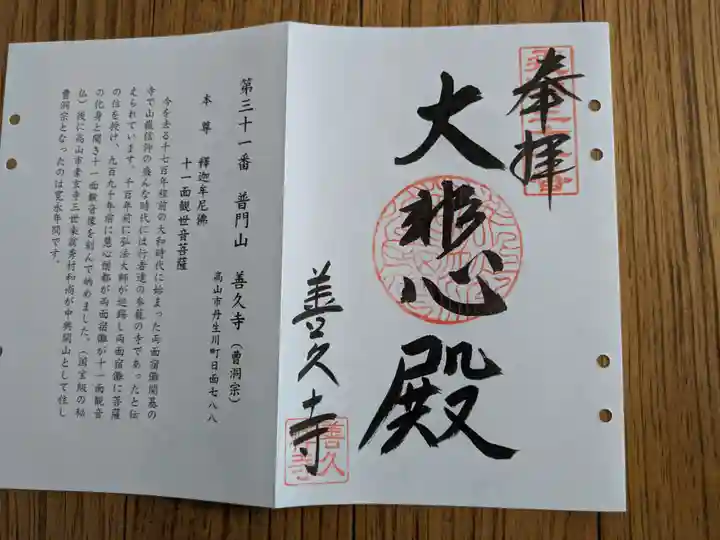 奉拝
大悲心殿
善久寺
善久
第三十一番 普門山 善久寺(曹洞宗)
高山市丹生川町日面七八八
本尊 釋迦牟尼佛
十一面観世音菩薩
今を去る千七百年程前の大和時代に始まった両面宿儺開基の
寺で山嶽信仰の盛んな時代には行者達の参籠の寺であったと伝
えられています。千百年前に弘法大師が巡錫し両面宿儺に菩薩
の位を授け、九百九十年前に恵心僧都が両面宿儺が十一面観音
の化身と聞き十一面観音像を刻んで納めました。(国宝級の秘
仏)後に高山市素玄寺三世来翁秀村和尚が中興開山として住し
曹洞宗となったのは寛永年間です。